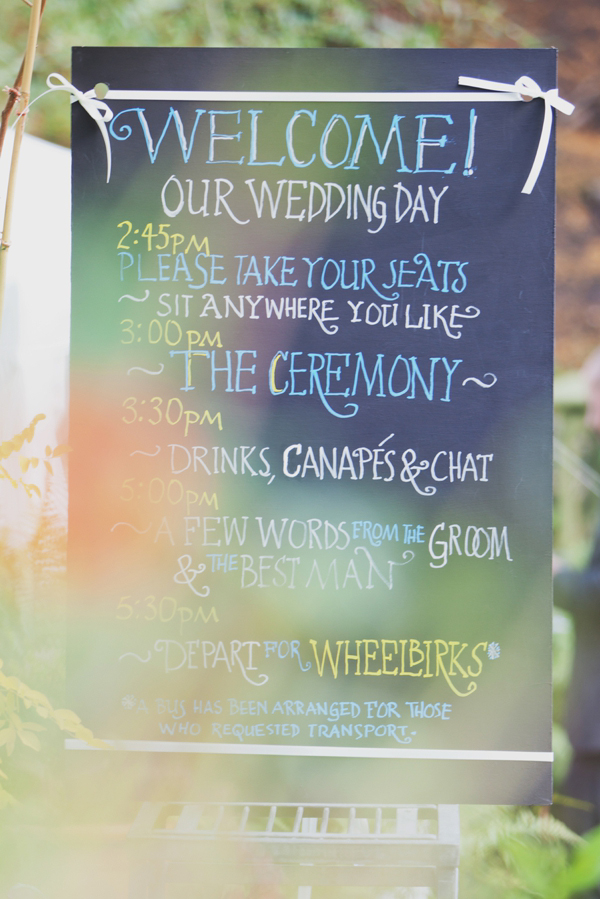 WELCOME!
OUR WEDDING DAY
2:45PM
PLEASE TAKE YOUR SEATS
~ SIT ANYWHERE YOU LIKE
3:00PM
~ THE CEREMONY ~
3:30PM
~ DRINKS, CANAPÉS & CHAT
5:00PM
~ A FEW WORDS FROM THE GROOM
& THE BEST MAN
5:30PM
~ DEPART FOR WHEELBIRKS*
*A BUS HAS BEEN ARRANGED FOR THOSE
WHO REQUESTED TRANSPORT.